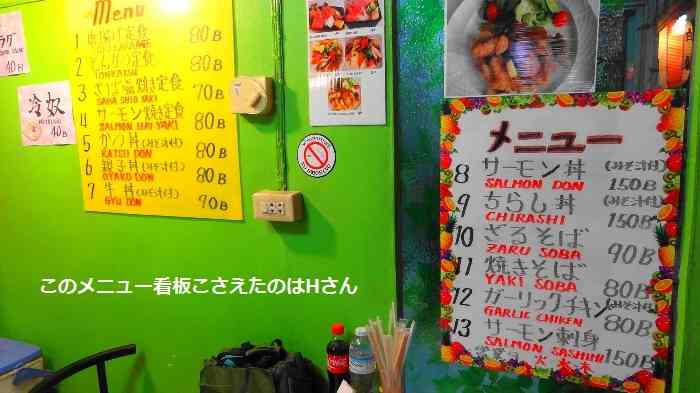 40B
冷奴
40B
Menu
1 唐揚げ定食 80B
2 とんかつ定食 80B
TONKATSU
3 さば塩焼き定食 70B
SABA SHIO YAKI
4 サーモン焼き定食 80B
5 カツ丼(みそ汁付) 80B
KATSU DON
6 親子丼(みそ汁付) 80B
OYAKO DON
7 牛丼(みそ汁付) 90B
GYU DON
メニュー
8 サーモン丼(みそ汁付)
SALMON DON 150B
9 ちらし丼(みそ汁付)
CHIRASHI 150B
10 ざるそば 90B
ZARU SOBA
11 焼きそば 80B
YAKI SOBA
12 ガーリックチキン(みそ汁付)
GARLIC CHIKEN 80B
13 サーモン刺身
SALMON SASHIMI 150B
このメニュー看板こさえたのはHさん